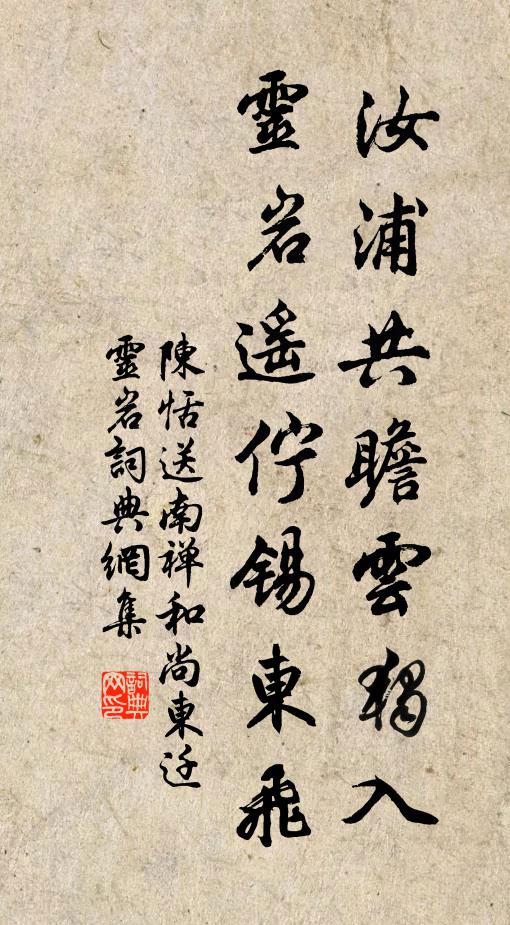 汝浦共瞻雲獨入
靈岩遥佇錫東飛
陳恬送南禅和尚東迁
靈岩詞典網集
詞典
网印